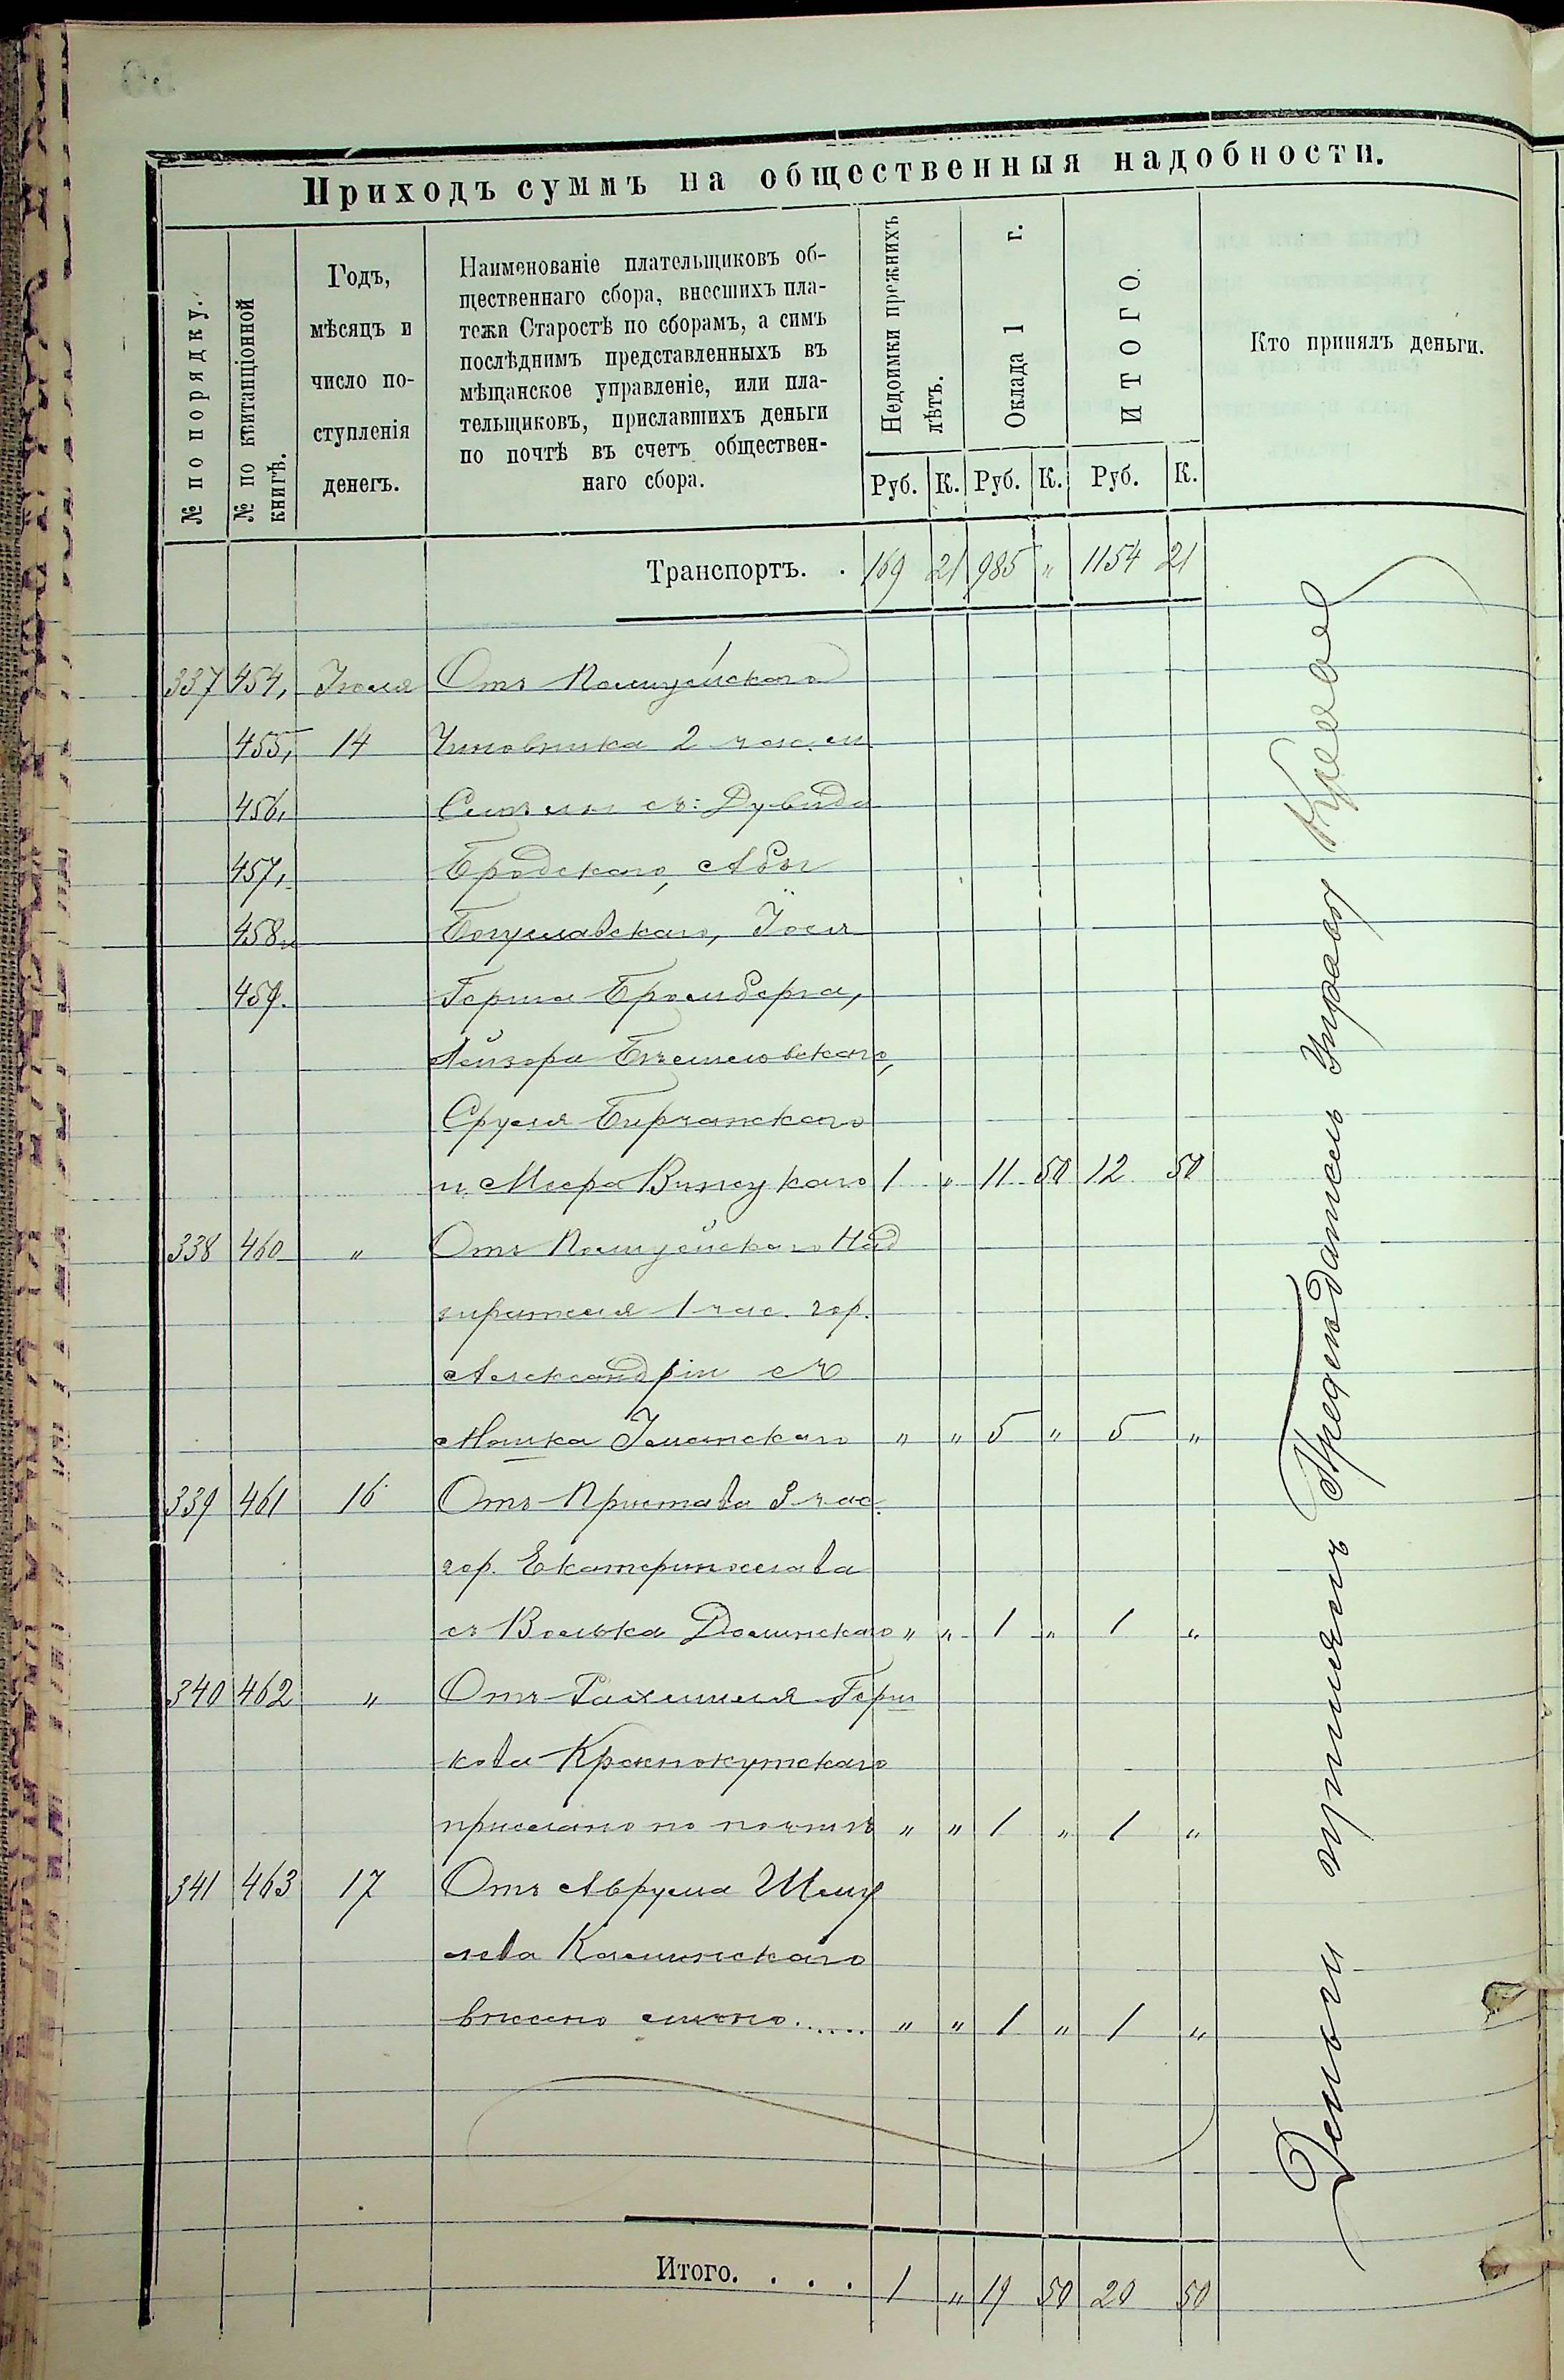 Приходъ суммъ на общественныя надобности.
№ по порядку.
№ по квитанціонной
книгѣ.
Годъ,
мѣсяцъ и
число по-
ступленія
денегъ.
Наименованіе плательщиковъ об-
щественнаго сбора, внесшихъ пла-
тежи Старостѣ по сборамъ, а симъ
послѣднимъ представленныхъ въ
мѣщанское управленіе, или пла-
тельщиковъ, приславшихъ деньги
по почтѣ въ счетъ обществен-
наго сбора.
Недоимки прежнихъ
лѣтъ.
Оклада 1 г.
ИТОГО.
Кто принялъ деньги.
Руб. К. Руб. К. Руб. К.
Транспортъ. . 169 21 985 " 1154 21
337 454, Іюля Отъ Полицейскаго
455, 14 Чиновника 2 час. м.
456, съ: Дувида
457, Бродскаго, Абы
458, Богуславскаго, Іося
459. Герша Бромберга,
Лейзора
Сруля Бирчанскаго
и Меера Виницкаго 1 " 11 50 12 50
338 460 " Отъ Полицейскаго Над
зирателя 1 час. гор.
Александріи съ
Мошка " " 5 " 5 "
339 461 16 Отъ Пристава 3 час.
гор. Екатеринослава
съ Волька Долинскаго " " 1 " 1 "
340 462 " Отъ Рахмиля Герш
кова Краснокутскаго
прислано по почтѣ " " 1 " 1 "
341 463 17 Отъ Аврума Шму
лева Калининскаго
внесено лично...... " " 1 " 1 "
Итого. . . . 1 " 19 50 20 50
Деньги принялъ Предсѣдатель Управы